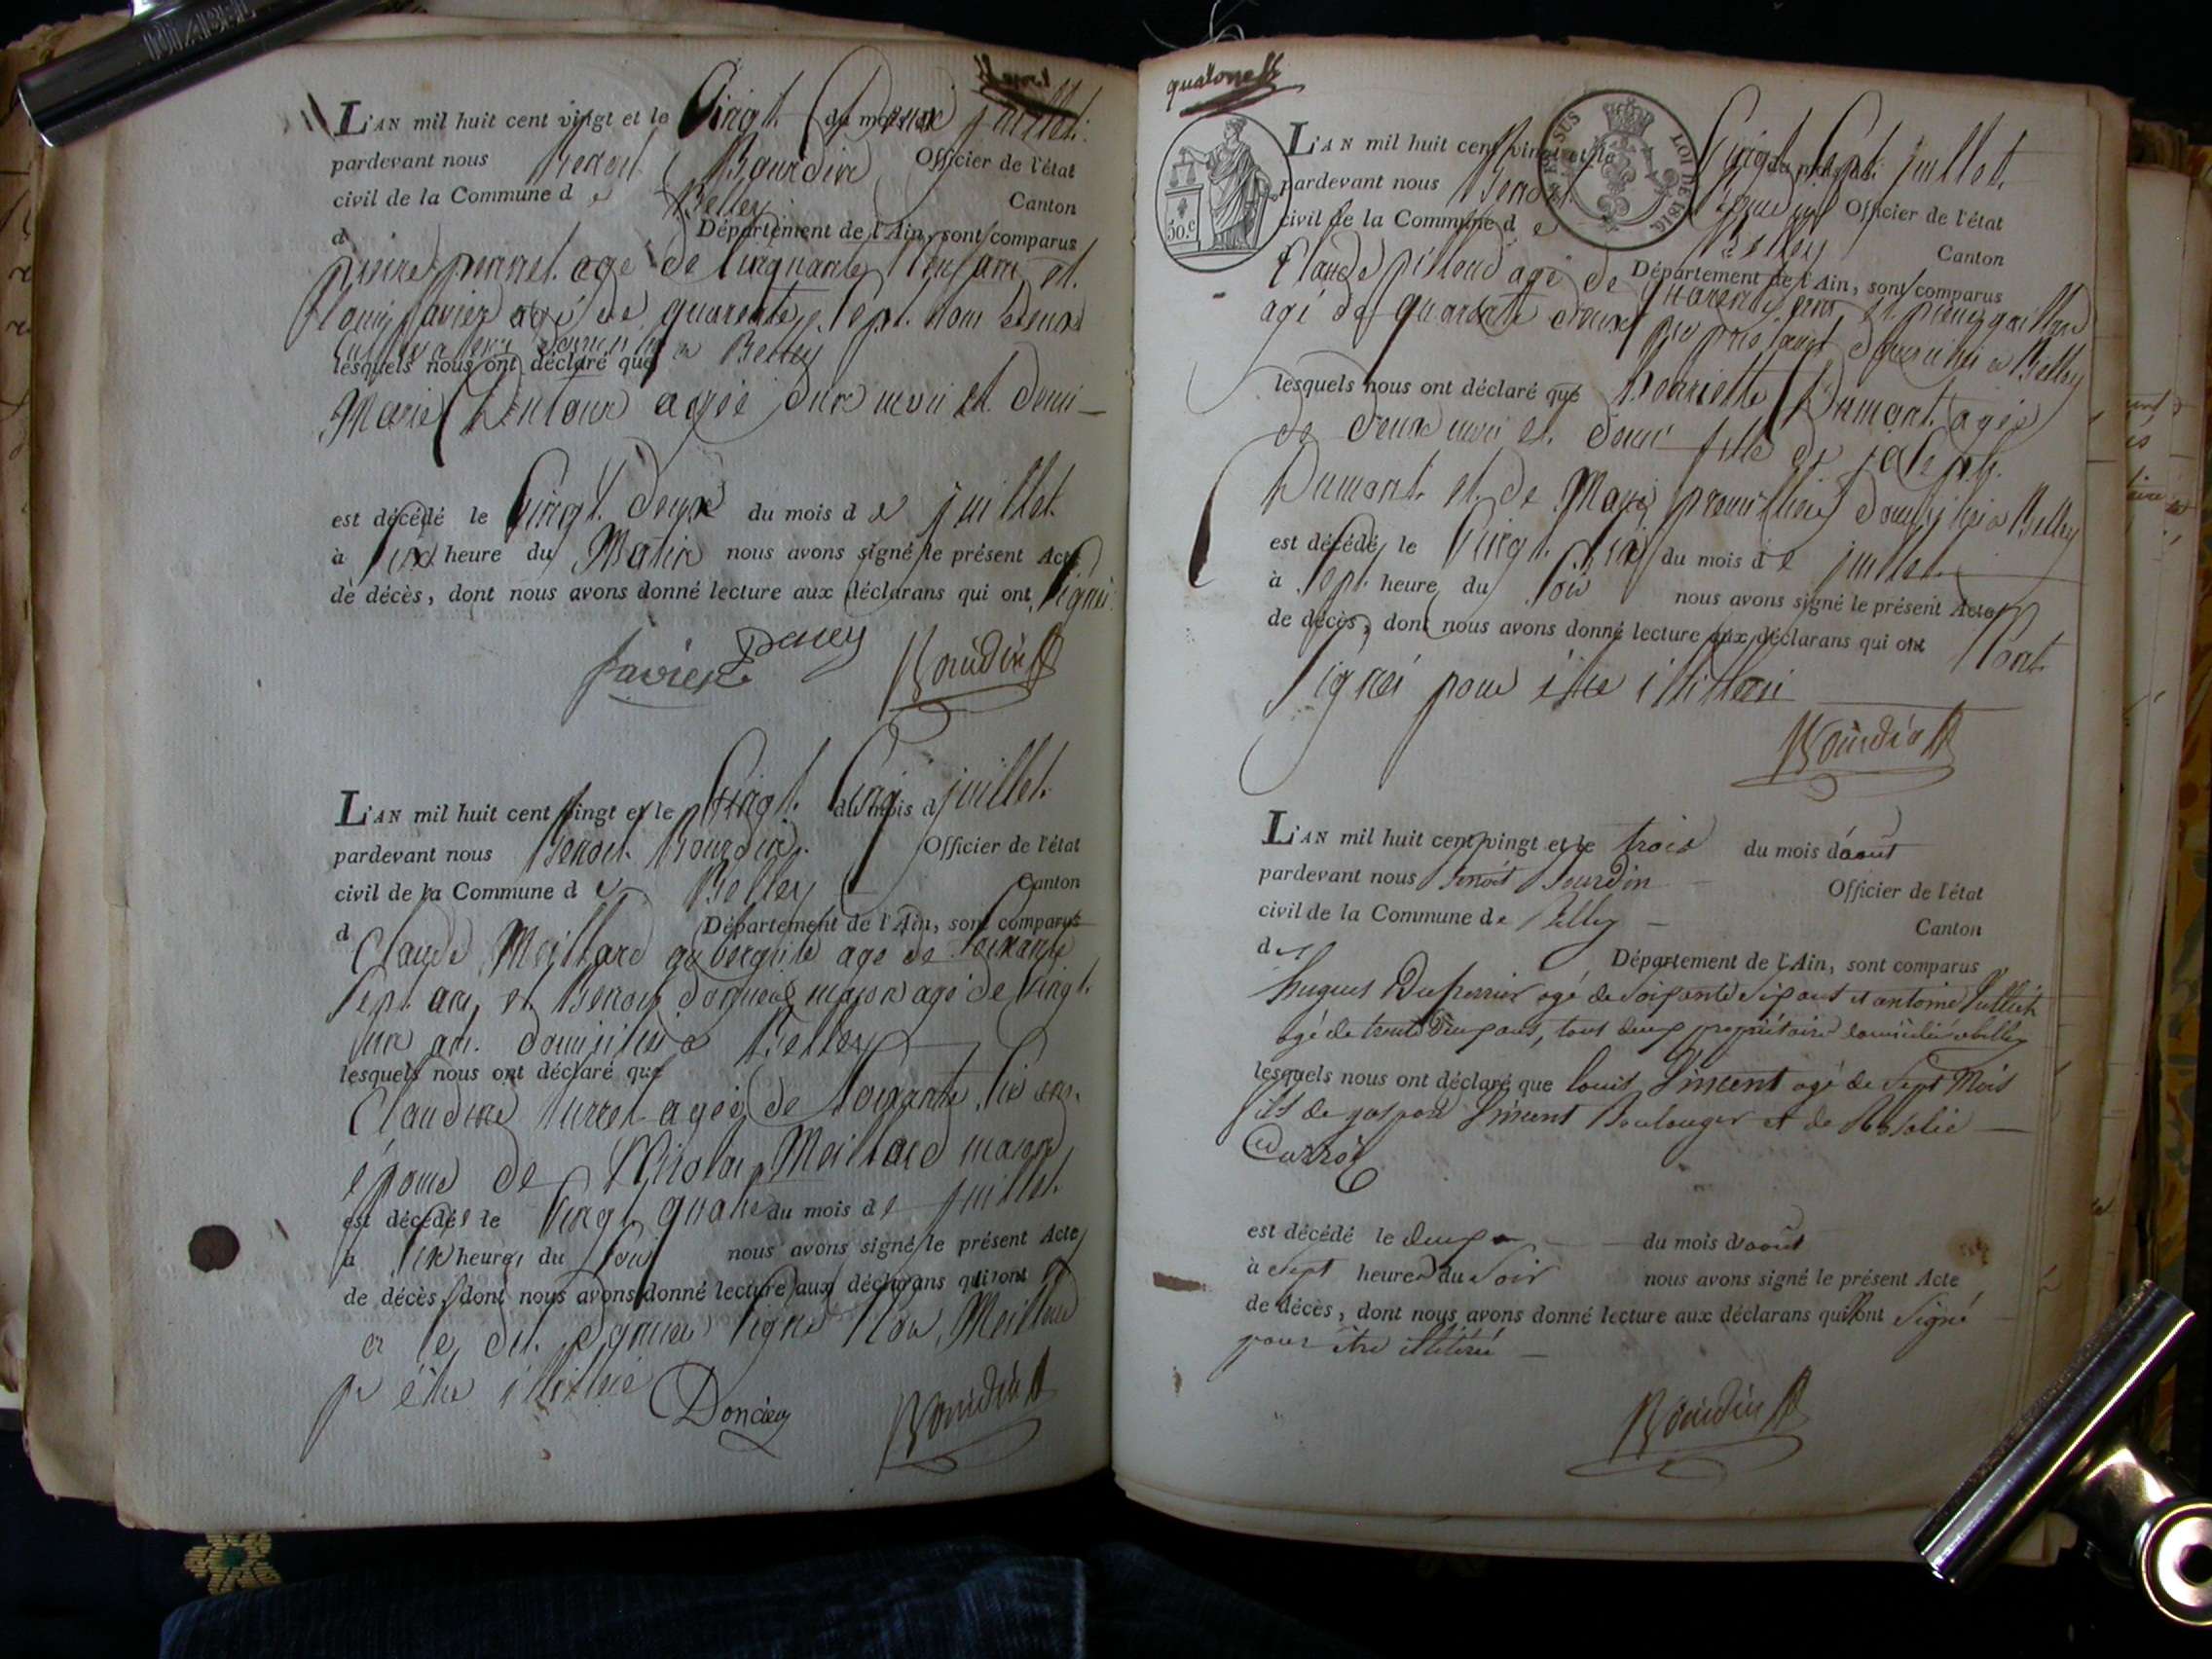 L'AN mil huit cent vingt et le Vingt deux du mois de juillet.
pardevant nous Benoit Bourdin Officier de l'état
civil de la Commune d e Belley Canton
d Département de l'Ain, sont comparus
pierre agé de Cinquante ans et
louis favier agé de quarente sept. tous deux
a Belley
lesquels nous ont déclaré que
Marie agée d'un mois et demi
est décédé le Vingt deux du mois d e juillet
à six heure du Matin nous avons signé le présent Acte
de décès, dont nous avons donné lecture aux déclarans qui ont signé
favier Bourdin
L'AN mil huit cent vingt et le Vingt Cinq du mois d juillet.
pardevant nous Benoit Bourdin Officier de l'état
civil de la Commune d e Belley Canton
d Département de l'Ain, sont comparus
Claude Meillard aubergiste agé de soixante
sept ans, et Benoit maçon agé de Vingt
un an. domiciliés a Belley
lesquels nous ont déclaré que
Claudine agée de soixante six ans.
épouse de Nicolas Meillard maçon
est décédée le Vingt quatre du mois d e juillet.
à six heures du soir nous avons signé le présent Acte
de décès, dont nous avons donné lecture aux déclarans qui ont
et le dit signé non Meillard
pr être illitéré
Doncieux Bourdin
quatorze
50.c
LOI DE 1816
L'AN mil huit cent vingt et le Vingt Sept. du mois de juillet.
pardevant nous Benoit Bourdin Officier de l'état
civil de la Commune d e Belley Canton
Département de l'Ain, sont comparus
Claude pilloud agé de quarente ans et pierre gaillard
agé de quarante deux propriétaires domiciliés a Belley
lesquels nous ont déclaré que henriette Dumont. agée
de deux mois et. demi fille de joseph.
Dumont. et de Marie domiciliés a Belley
est décédé, le Vingt. six du mois d e juillet.
à sept. heure du soir nous avons signé le présent Acte
de décès, dont nous avons donné lecture aux déclarans qui ont n'ont
signés pour être illitéré
Bourdin
L'AN mil huit cent vingt et le trois du mois d'août
pardevant nous Benoit Bourdin Officier de l'état
civil de la Commune de Belley Canton
de Département de l'Ain, sont comparus
hugues Duperrier agé de soixante six ans et antoine
agé de trente deux ans, tous deux propriétaires domiciliés a belley
lesquels nous ont déclaré que louis Vincent agé de sept Mois
fils de gaspard Vincent Boulanger et de Rosalie
est décédé le deux du mois d'août
à sept heures du soir nous avons signé le présent Acte
de décès, dont nous avons donné lecture aux déclarans qui n'ont signé
pour être illitéré
Bourdin